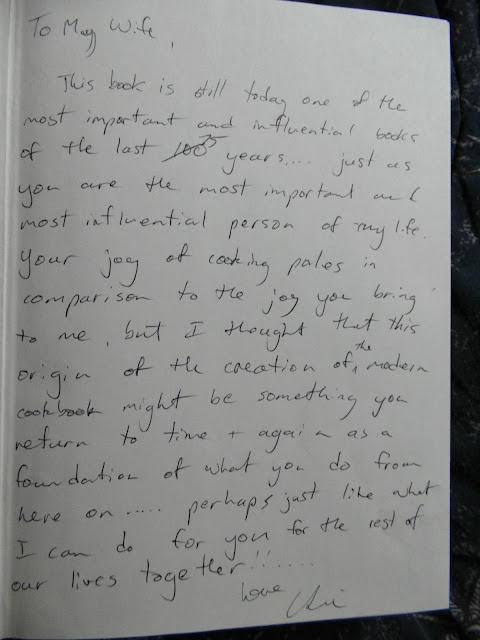 To My Wife,
This book is still today one of the
most important and influential books
of the last 100 75 years.... just as
you are the most important and
most influential person of my life.
Your joy of cooking pales in
comparison to the joy you bring
to me, but I thought that this
origin of the creation of the modern
cookbook might be something you
return to time + again as a
foundation of what you do from
here on ..... perhaps just like what
I can do for you for the rest of
our lives together!!......
Love